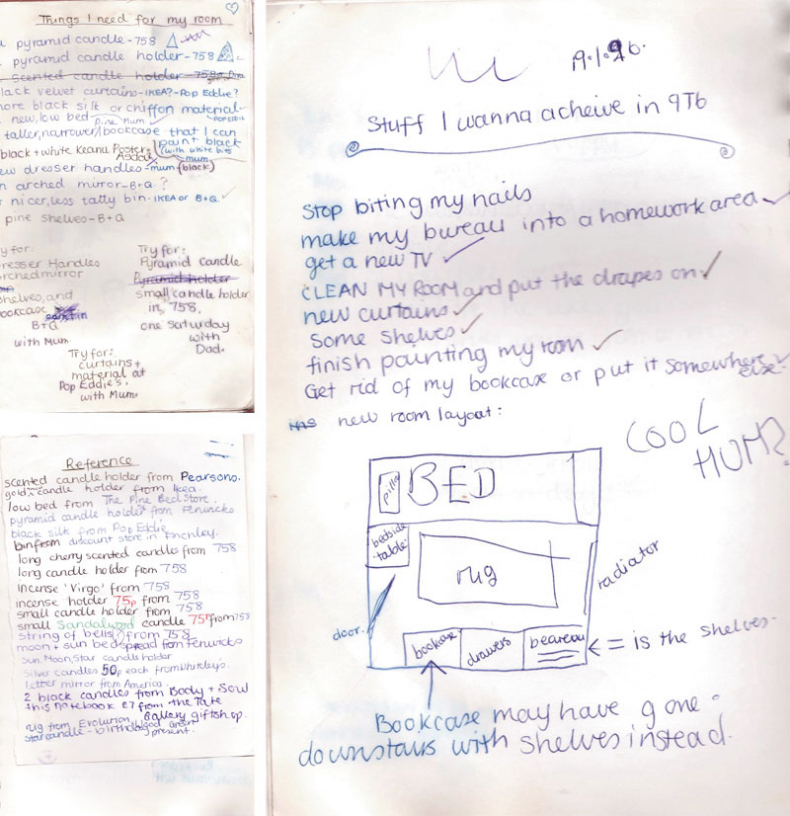 Things I need for my room
pyramid candle - 758
pyramid candle holder - 758
scented candle holder - 758
lack velvet curtains - IKEA? - Pop Eddie?
ore black silk or chiffon material -
new, low bed - Pine Mum
taller, narrower, bookcase that I can
paint black
black + white Keanu Poster - (with white bits
Asda mum
ew dresser handles - mum (black)
n arched mirror - B+Q ?
nicer, less tatty bin - IKEA or B+Q.
pine shelves - B+Q
y for:
resser Handles
rched mirror
shelves, and
ookcase
B+Q
with Mum
Try for:
Pyramid candle
Pyramid holder
small candle holder
in 758,
one Saturday
with
Dad.
Try for:
curtains +
material at
Pop Eddies.
with Mum.
Reference
scented candle holder from Pearsons.
gold candle holder from Ikea.
low bed from The Pine Bed Store.
pyramid candle holder from Fenwicks
black silk from Pop Eddie
bin from discount store in Finchley.
long cherry scented candles from 758
long candle holder from 758
incense 'Virgo' from 758
incense holder 75p from 758
small candle holder from 758
small Sandalwood candle 75p from 758
string of bells from 758
moon + sun bedspread from Fenwicks
Sun, Moon, Star candle holder
silver candles 50p each from Whiteley's
letter mirror from America.
2 black candles from Body + Soul
this notebook £7 from the Tate
Gallery giftshop.
rug from Evolution,
star candle - birthday present.
19.1.96.
Stuff I wanna acheive in 9T6
Stop biting my nails
make my bureau into a homework area
get a new TV
CLEAN MY ROOM and put the drapes on
new curtains
Some shelves
finish painting my room
Get rid of my bookcase or put it somewhere
else
new room layout:
COOL
HUM?
pillow
BED
bedside
table
rug
radiator
door.
bookcase
drawers
beareau
= is the shelves.
Bookcase may have gone
downstairs with shelves instead.